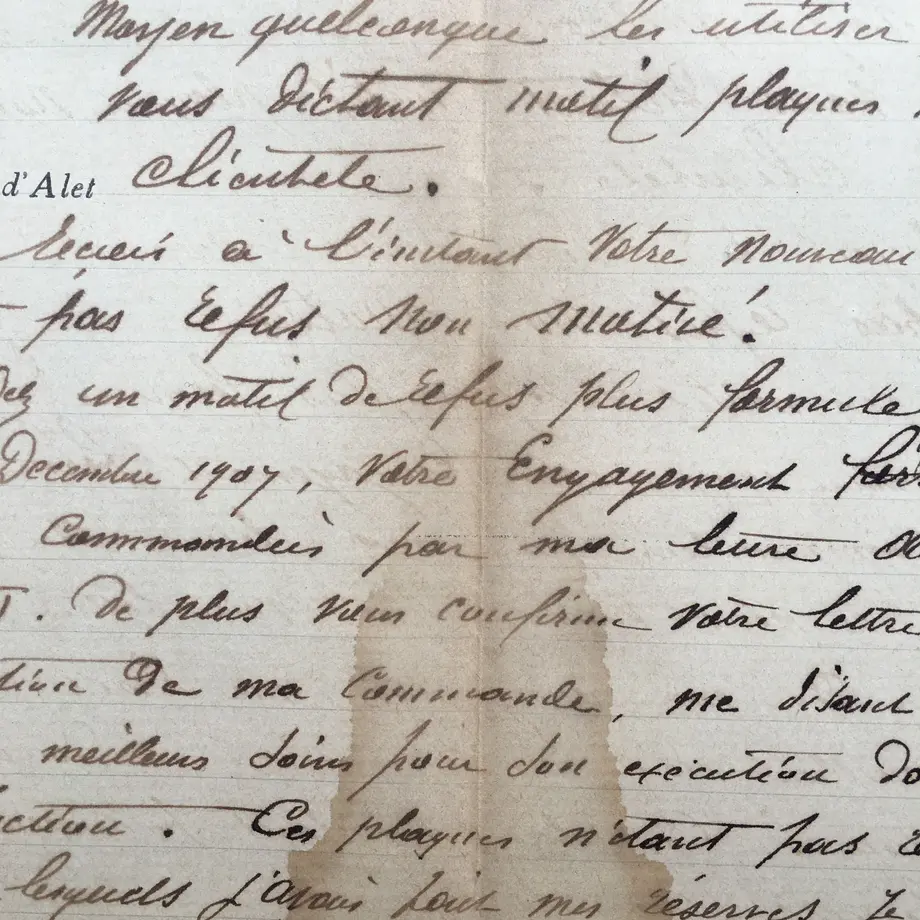 Moyen quelconque les utiliser
vous dictant motif plaques
d'Alet clientele.
Recois à l'instant Votre nouveau
pas Refus non motivé.
un motif de Refus plus formulé
Decembre 1907, Votre Engagement
Commandées par ma lettre
De plus vous confirme Votre lettre
de ma Commande, me disant
meilleurs soins pour son execution
Ces plaques n'étant pas
lesquels j'avais fait mes réserves Je